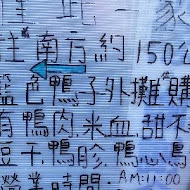 僅此一家
往南方約150公
← 藍色鴨子外攤購
有鴨肉.米血.甜不
豆干.鴨胗.鴨心.鳥
營業時間:AM:11:00